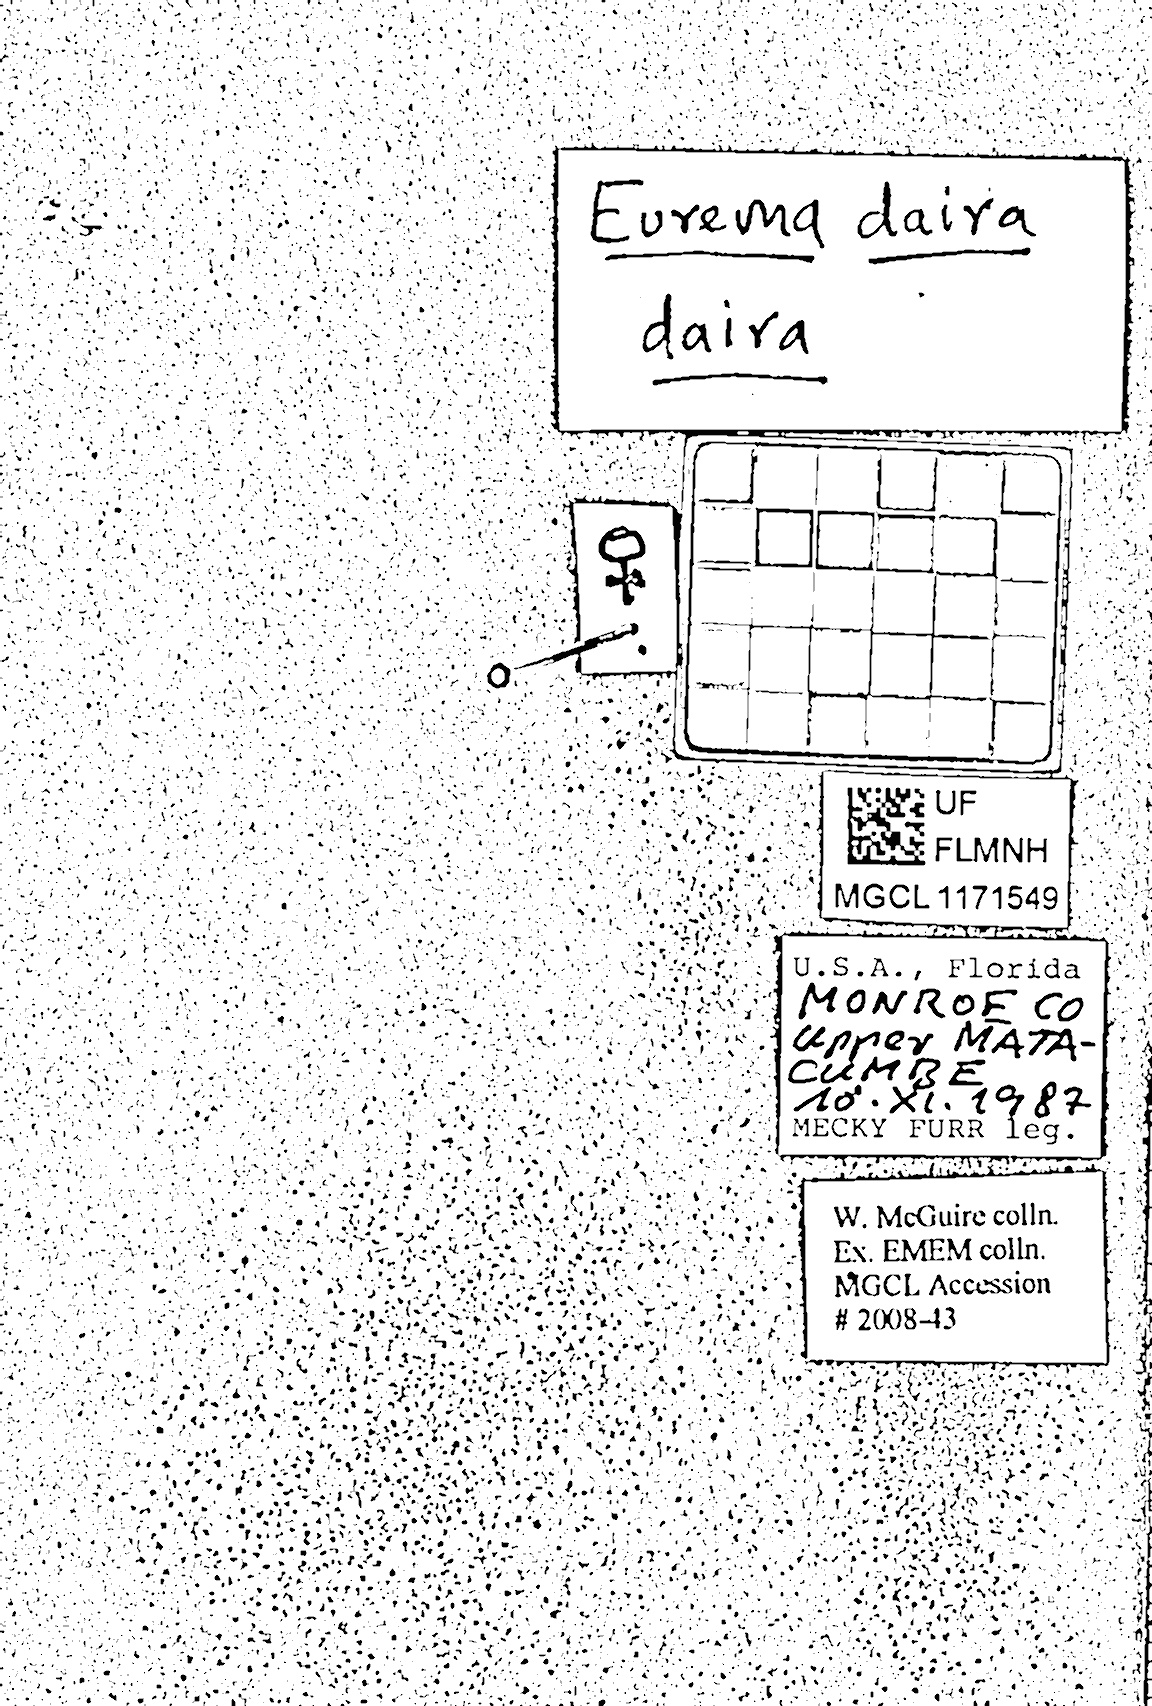 Eurema daira
daira
♀
UF
FLMNH
MGCL 1171549
U.S.A., Florida
MONROE CO
Upper MATA-
CUMBE
10.XI.1987
MECKY FURR leg.
W. McGuire colln.
Ex. EMEM colln.
MGCL Accession
# 2008-43